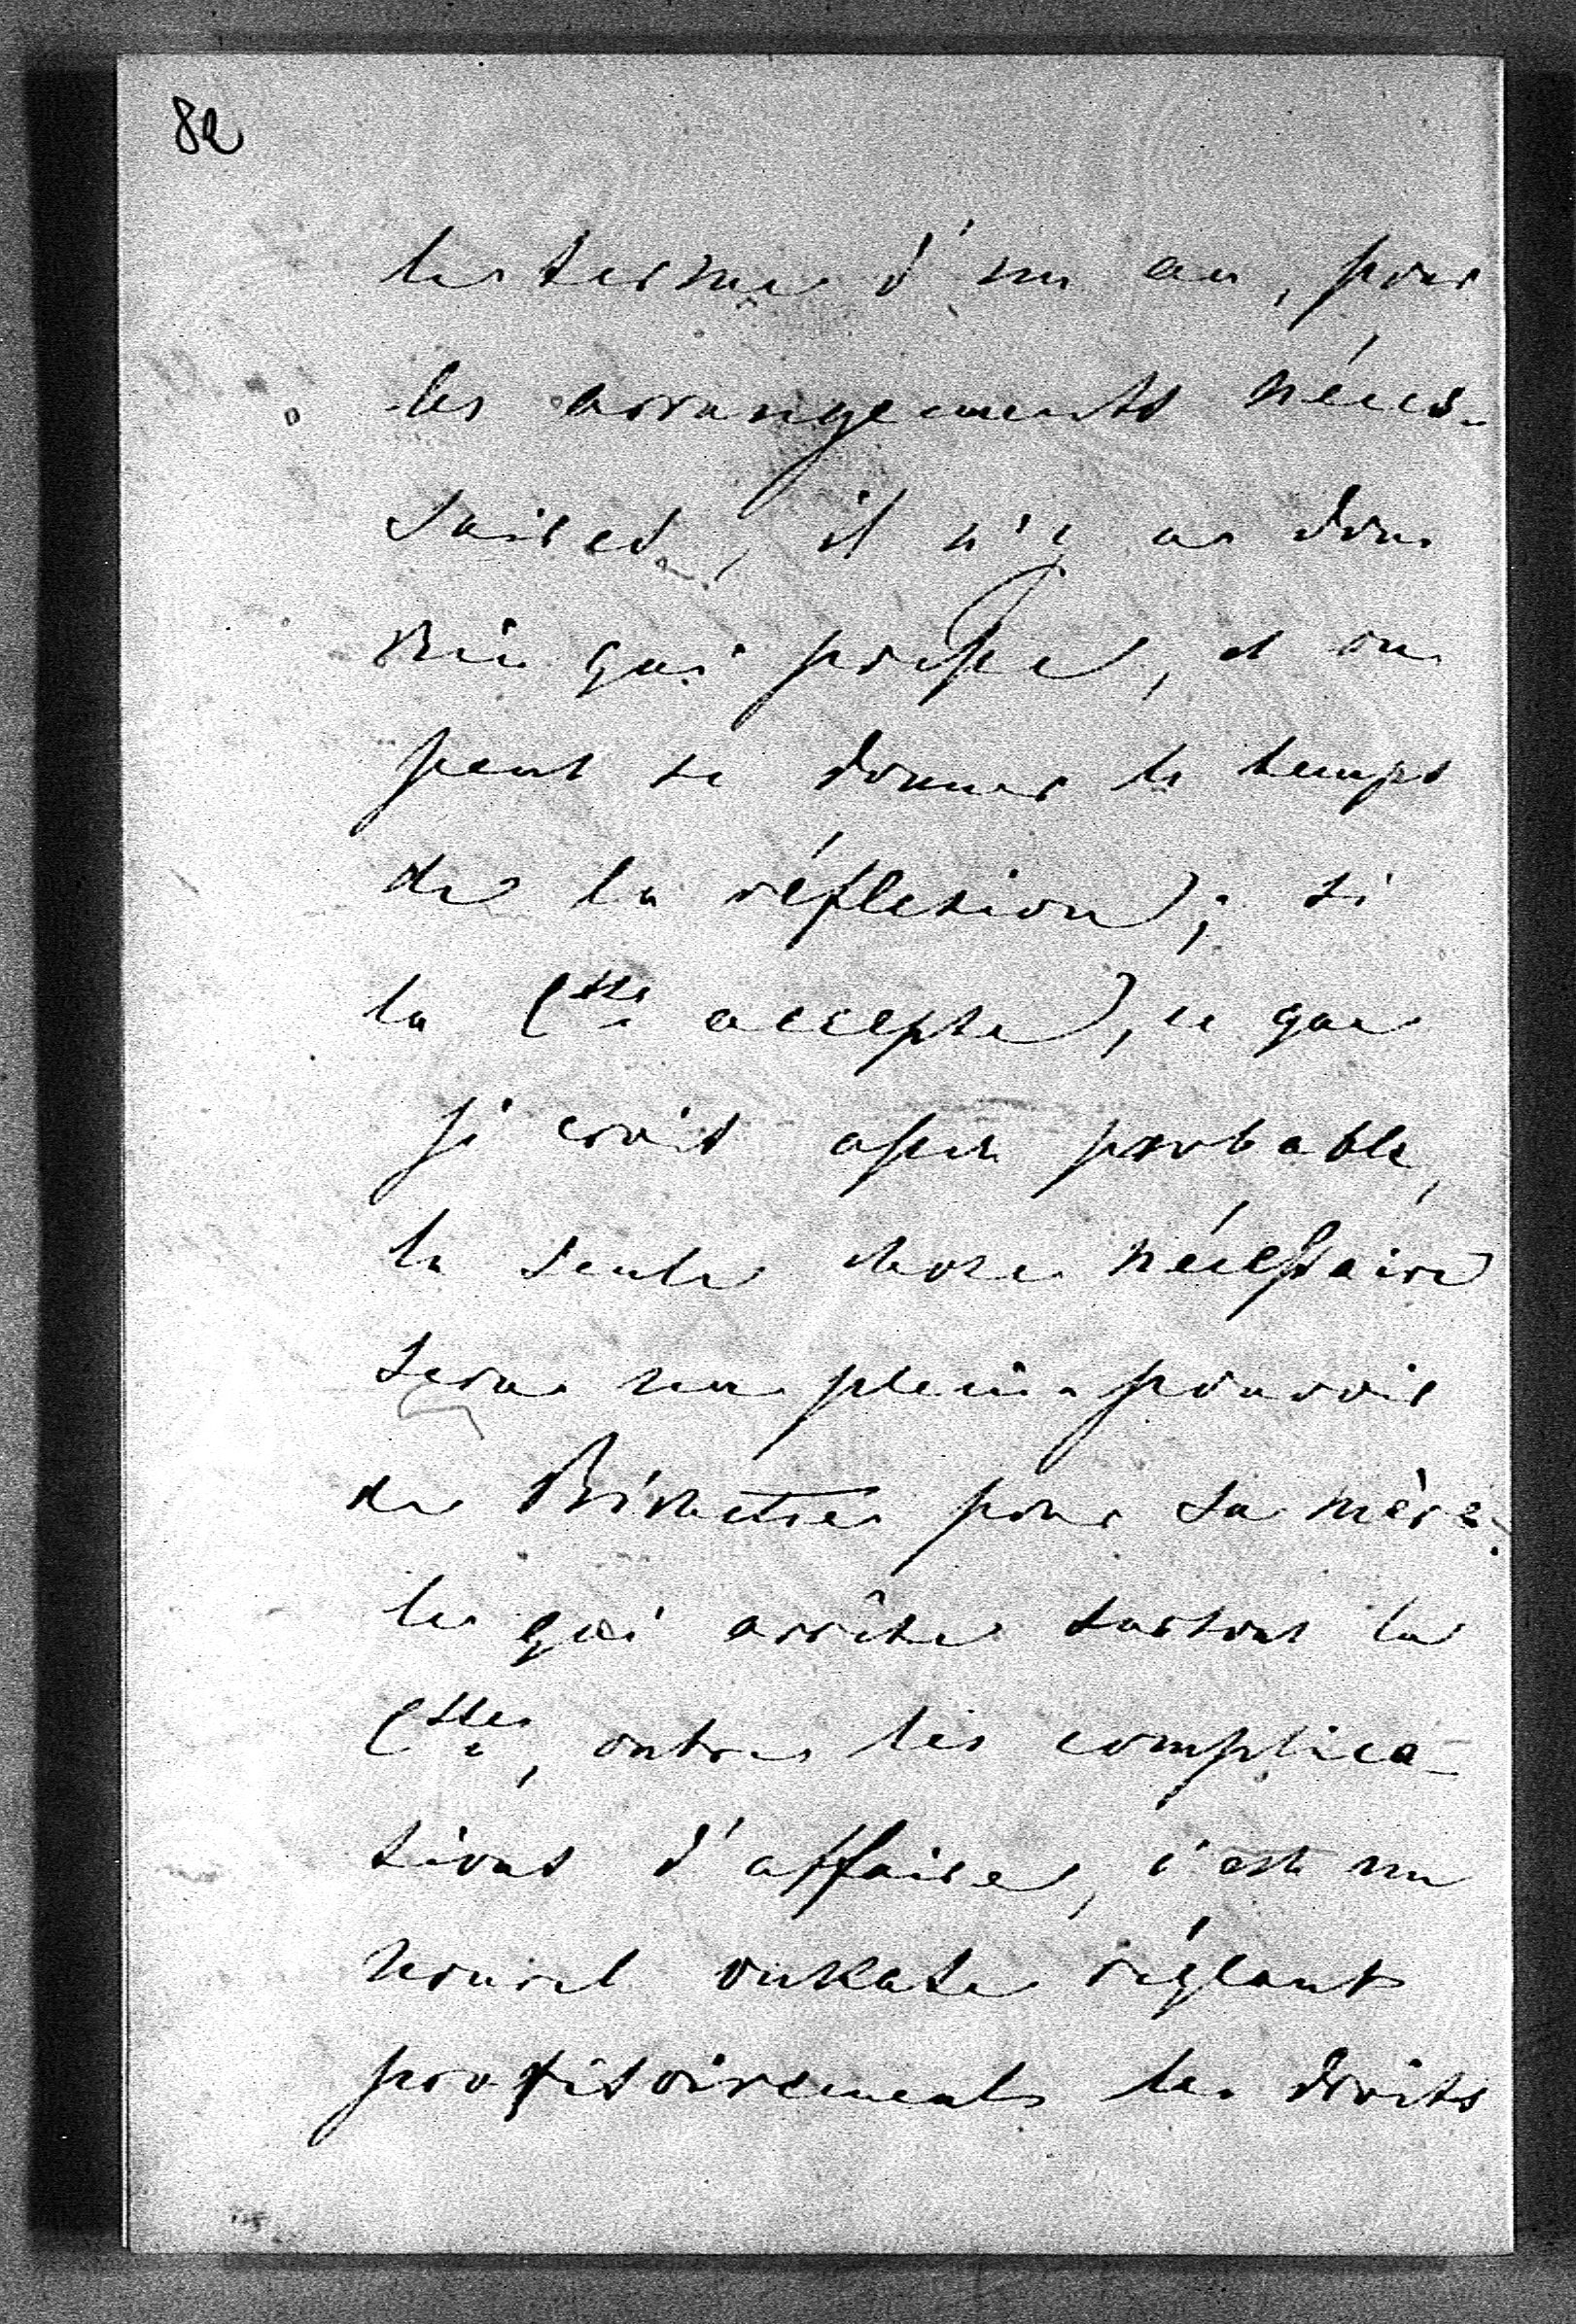 82
le terme d'un an, pour
les arrangements néces-
saires, il n'y a donc
rien qui presse, et on
peut se donner le temps
de la réflexion; si
la Ctsse accepte, ce que
je crois assez probable,
la seule chose nécessaire
sera un plein-pouvoir
de pour sa mère.
Ce qui arrête surtout la
Ctsse, outre les complica-
tions d'affaire, c'est un
nouvel oukase réglant
provisoirement les droits